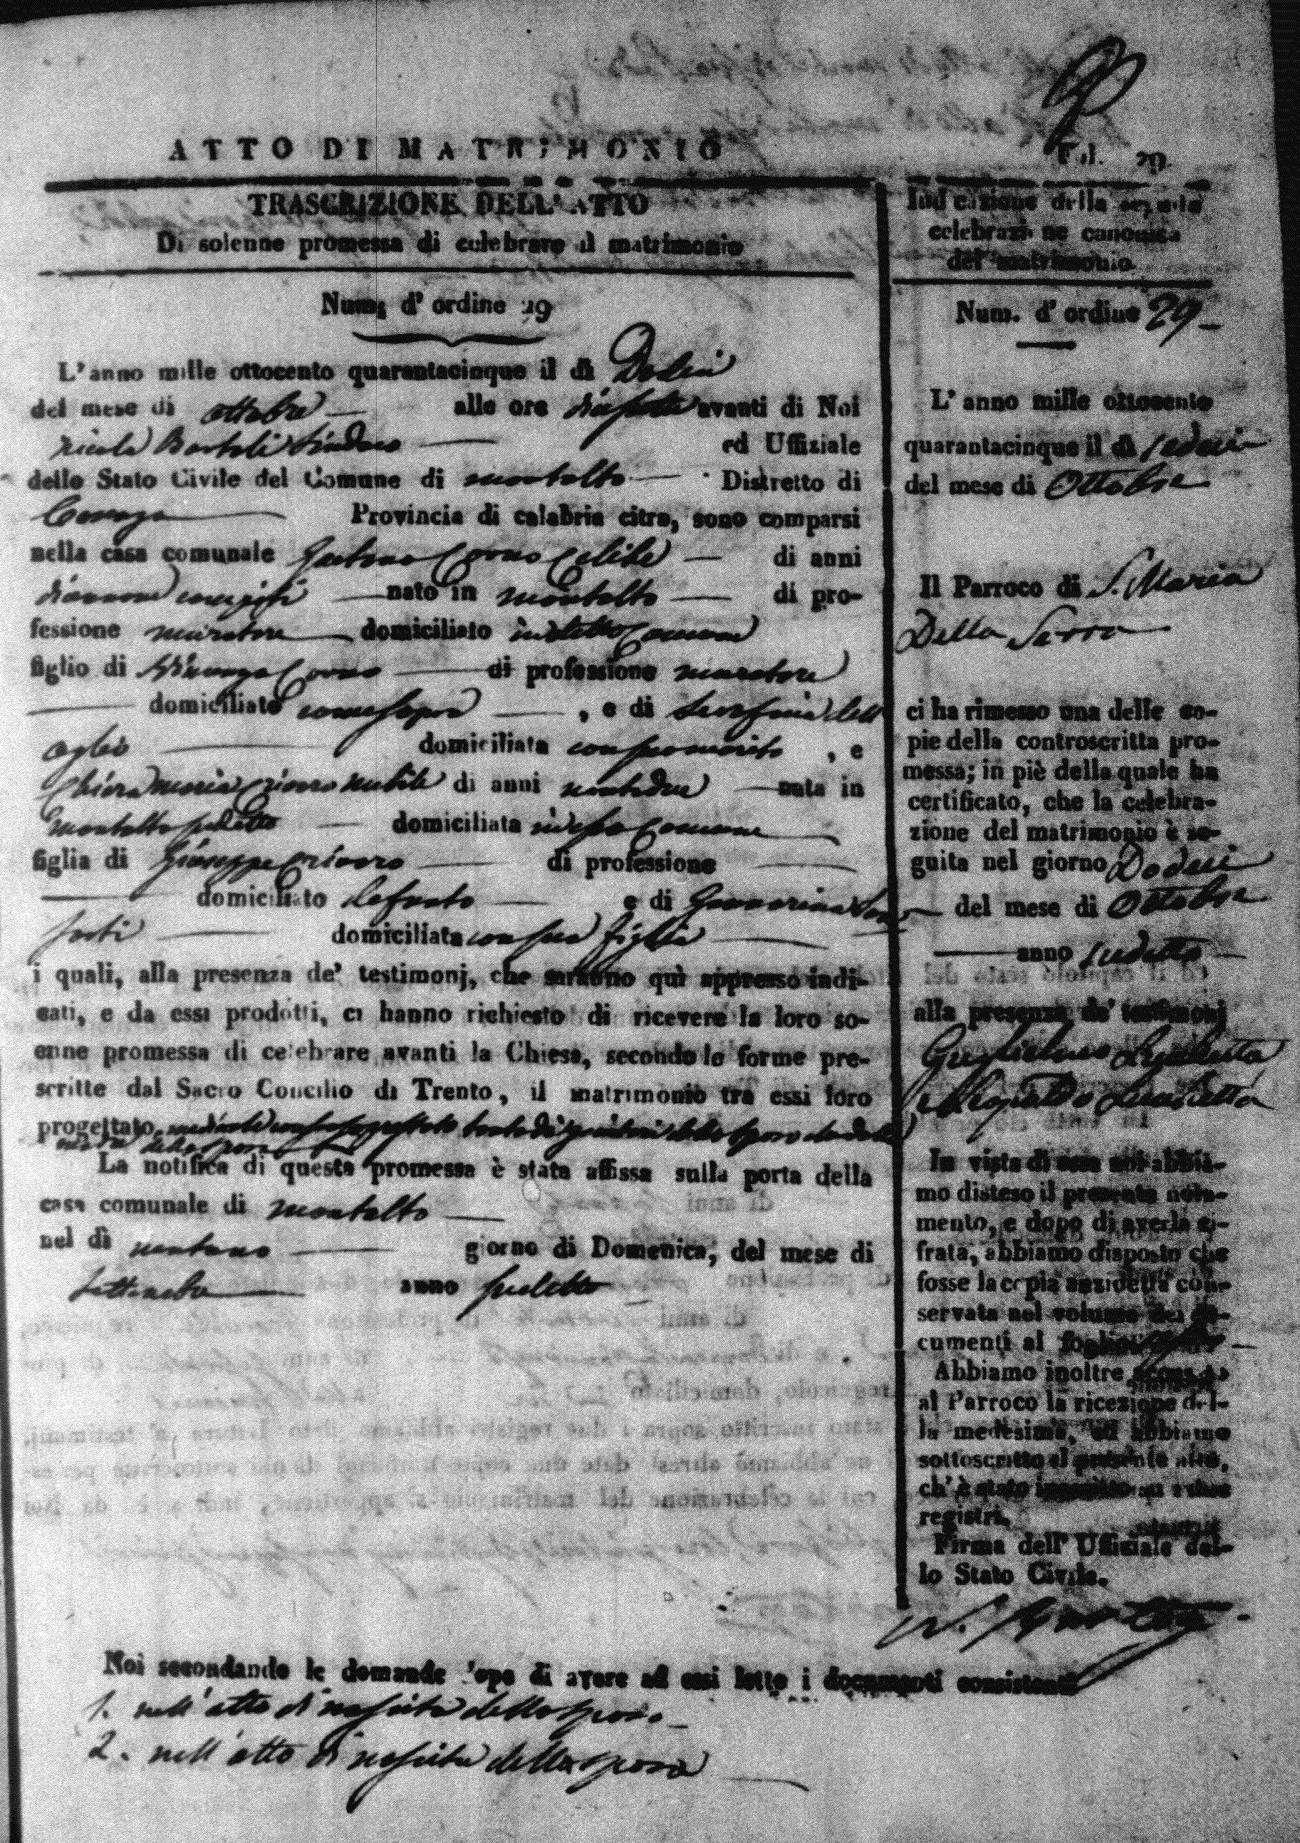 ATTO DI MATRIMONIO
Fol. 29.
TRASCRIZIONE DELL' ATTO
Di solenne promessa di celebrare il matrimonio
Num. d' ordine 29
L'anno mille ottocento quarantacinque il dì Dodeci
del mese di ottobre alle ore avanti di Noi
Nicola Bartoli Sindaco ed Uffiziale
dello Stato Civile del Comune di Montalto Distretto di
Cosenza Provincia di calabria citra, sono comparsi
nella casa comunale Gaetano Corno Celibe di anni
nato in Montalto di pro-
fessione muratore domiciliato in detto Comune
figlio di Vincenzo Corno di professione muratore
domiciliato come sopra , e di Serafina dell
aglio domiciliata con suo marito , e
Chiara Maria nubile di anni ventidue nata in
Montalto sudetto domiciliata in esso Comune
figlia di Giuseppe di professione
domiciliato defunto e di
domiciliata con sua figlia
i quali, alla presenza de' testimonj, che saranno quì appresso indi-
cati, e da essi prodotti, ci hanno richiesto di ricevere la loro so-
enne promessa di celebrare avanti la Chiesa, secondo le forme pre-
scritte dal Sacro Concilio di Trento, il matrimonio tra essi loro
progettato
La notifica di questa promessa è stata affissa sulla porta della
casa comunale di Montalto
nel dì ventuno giorno di Domenica, del mese di
Settembre anno sudetto
Noi secondando le domande dopo di avere ad essi letto i documenti consistenti
1. nell' atto di nascita dello sposo
2. nell' atto di nascita della sposa
Indicazione della seguita
celebrazione canonica
del matrimonio
Num. d' ordine 29
L' anno mille ottocento
quarantacinque il dì sedeci
del mese di Ottobre
Il Parroco di S. Maria
Della Serra
ci ha rimesso una delle co-
pie della controscritta pro-
messa; in piè della quale ha
certificato, che la celebra-
zione del matrimonio è se-
guita nel giorno Dodeci
del mese di Ottobre
anno sudetto
alla presenza de' testimonj
Guglielmo
e Leopoldo
In vista di essa noi abbia-
mo disteso il presente nota-
mento, e dopo di averla ci-
frata, abbiamo disposto che
fosse la copia anzidetta con-
servata nel volume dei do-
cumenti al foglio
Abbiamo inoltre accusato
al Parroco la ricezione del-
la medesima, ed abbiamo
sottoscritto il presente atto,
ch' è stato inscritto su i due
registri.
Firma dell' Ufficiale del-
lo Stato Civile.